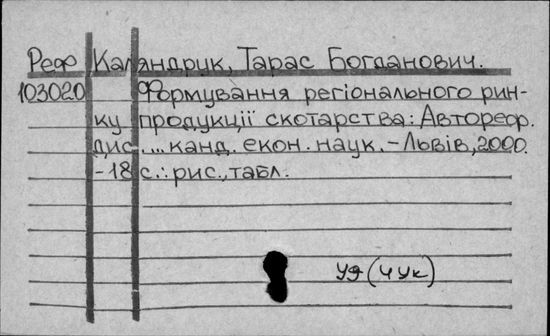 Реф Каляндрук, Тарас Богданович.
103020 Формування регіонального рин-
ку продукції скотарства: Автореф.
дис. ... канд. екон. наук. - Львів, 2000.
- 18 с.: рис., табл.
УЯ (4 Ук)